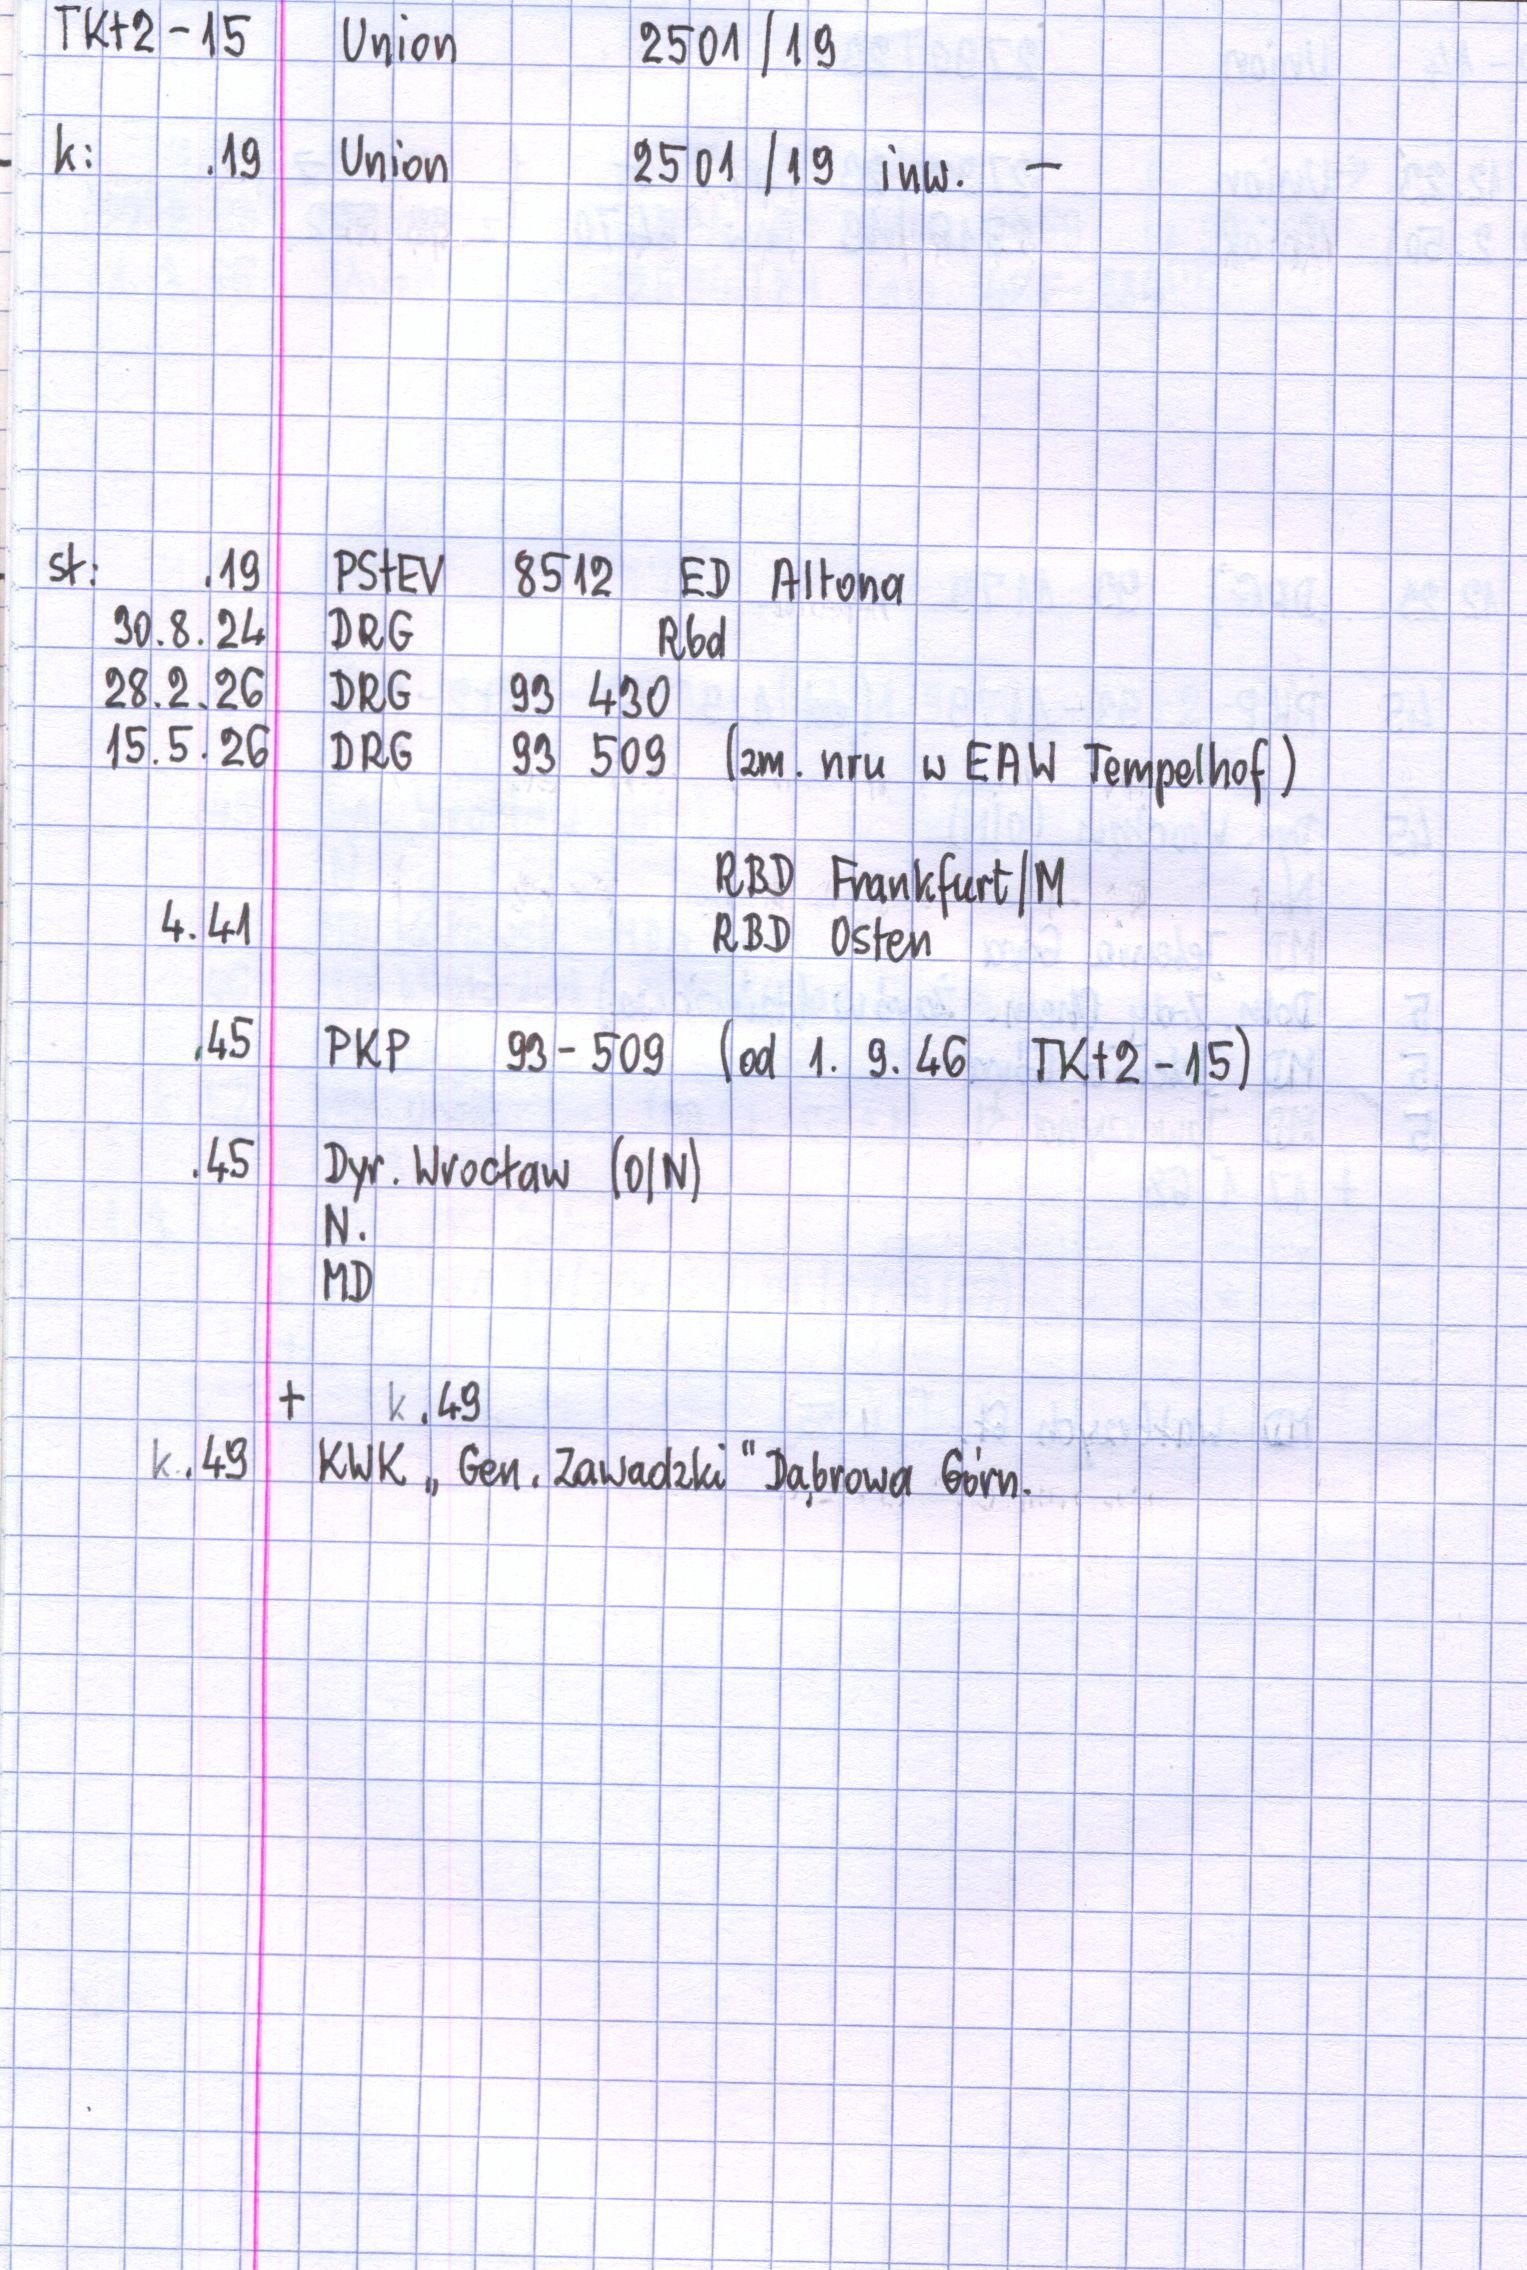 TKt2-15 Union 2501/19
k: .19 Union 2501/19 inw. —
st: .19 PStEV 8512 ED Altona
30.8.24 DRG Rbd
28.2.26 DRG 93 430
15.5.26 DRG 93 509 (zm. nru w EAW Tempelhof)
RBD Frankfurt/M
4.41 RBD Osten
.45 PKP 93-509 (od 1.9.46 TKt2-15)
.45 Dyr. Wrocław (O/N)
N.
MD
+ k.49
k.49 KWK „Gen. Zawadzki" Dąbrowa Górn.